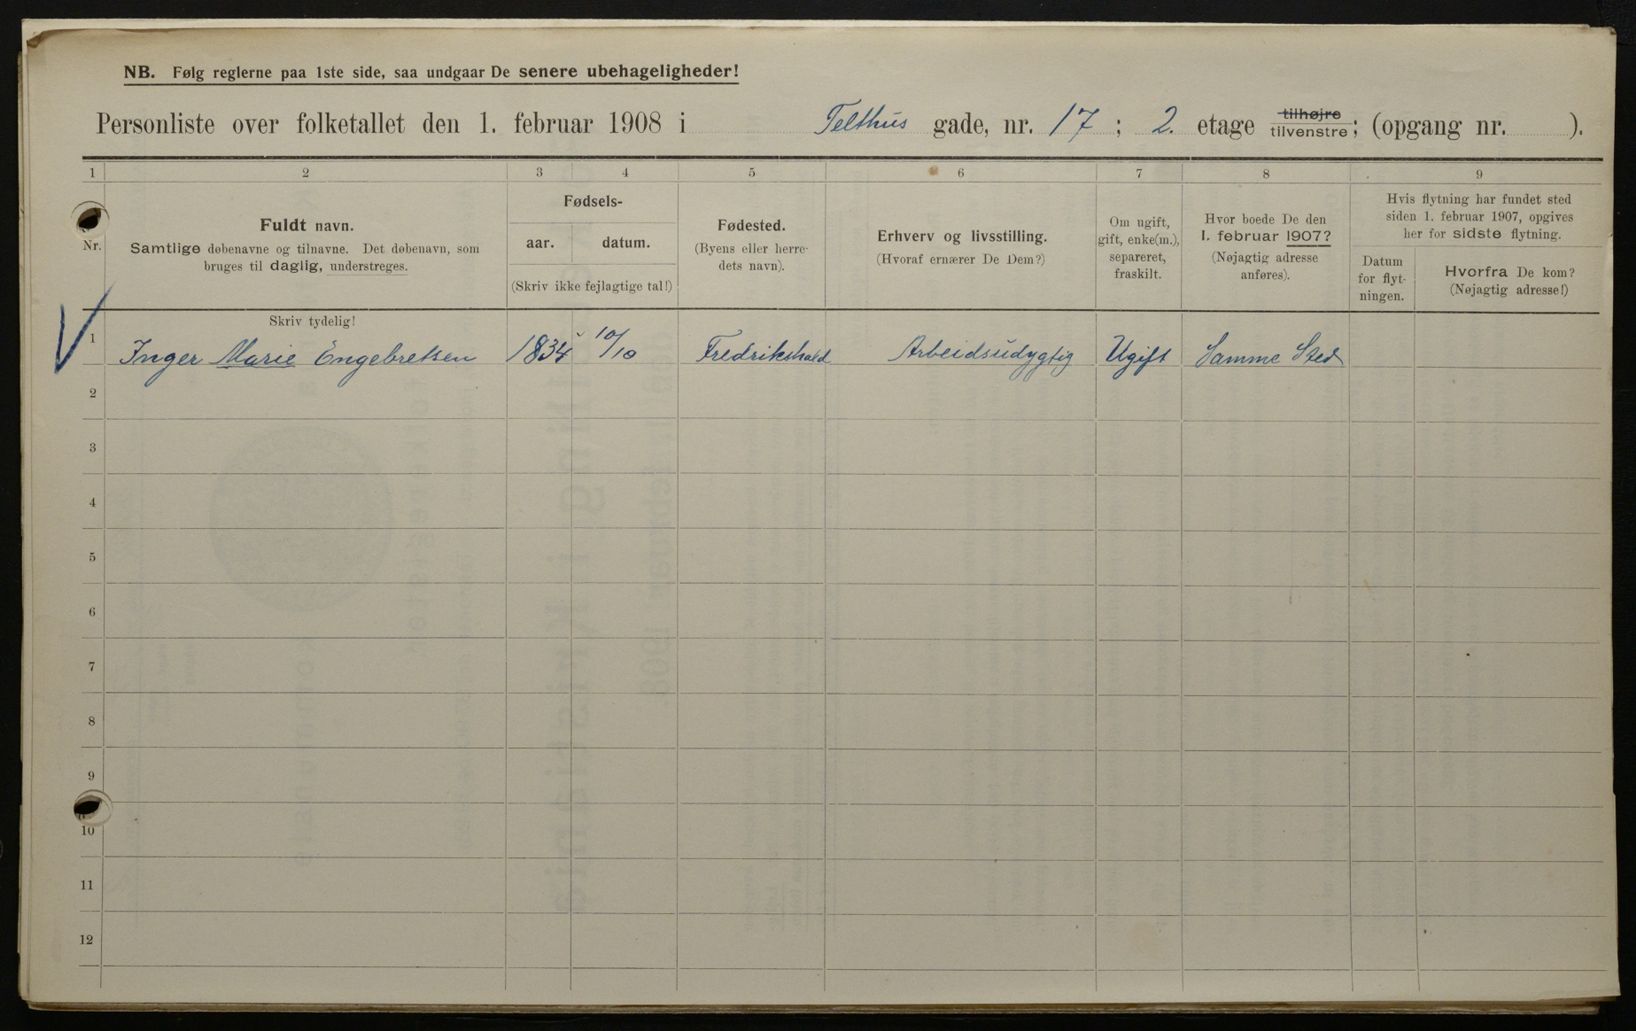 NB. Følg reglerne paa 1ste side, saa undgaar De senere ubehageligheder!
Personliste over folketallet den 1. februar 1908 i Telthus gade, nr. 17 ; 2. etage tilhøjre tilvenstre; (opgang nr. ).
1 2 3 4 5 6 7 8 9
Nr.
Fuldt navn.
Samtlige døbenavne og tilnavne. Det døbenavn, som
bruges til daglig, understreges.
Fødsels-
aar. datum.
(Skriv ikke fejlagtige tal!)
Fødested.
(Byens eller herre-
dets navn).
Erhverv og livsstilling.
(Hvoraf ernærer De Dem?)
Om ugift,
gift, enke(m.),
separeret,
fraskilt.
Hvor boede De den
1. februar 1907?
(Nøjagtig adresse
anføres).
Hvis flytning har fundet sted
siden 1. februar 1907, opgives
her for sidste flytning.
Datum
for flyt-
ningen.
Hvorfra De kom?
(Nøjagtig adresse!)
Skriv tydelig!
1 Inger Marie Engebretsen 1834 10/10 Fredrikshald Arbeidsudygtig Ugift Samme Sted
2
3
4
5
6
7
8
9
10
11
12